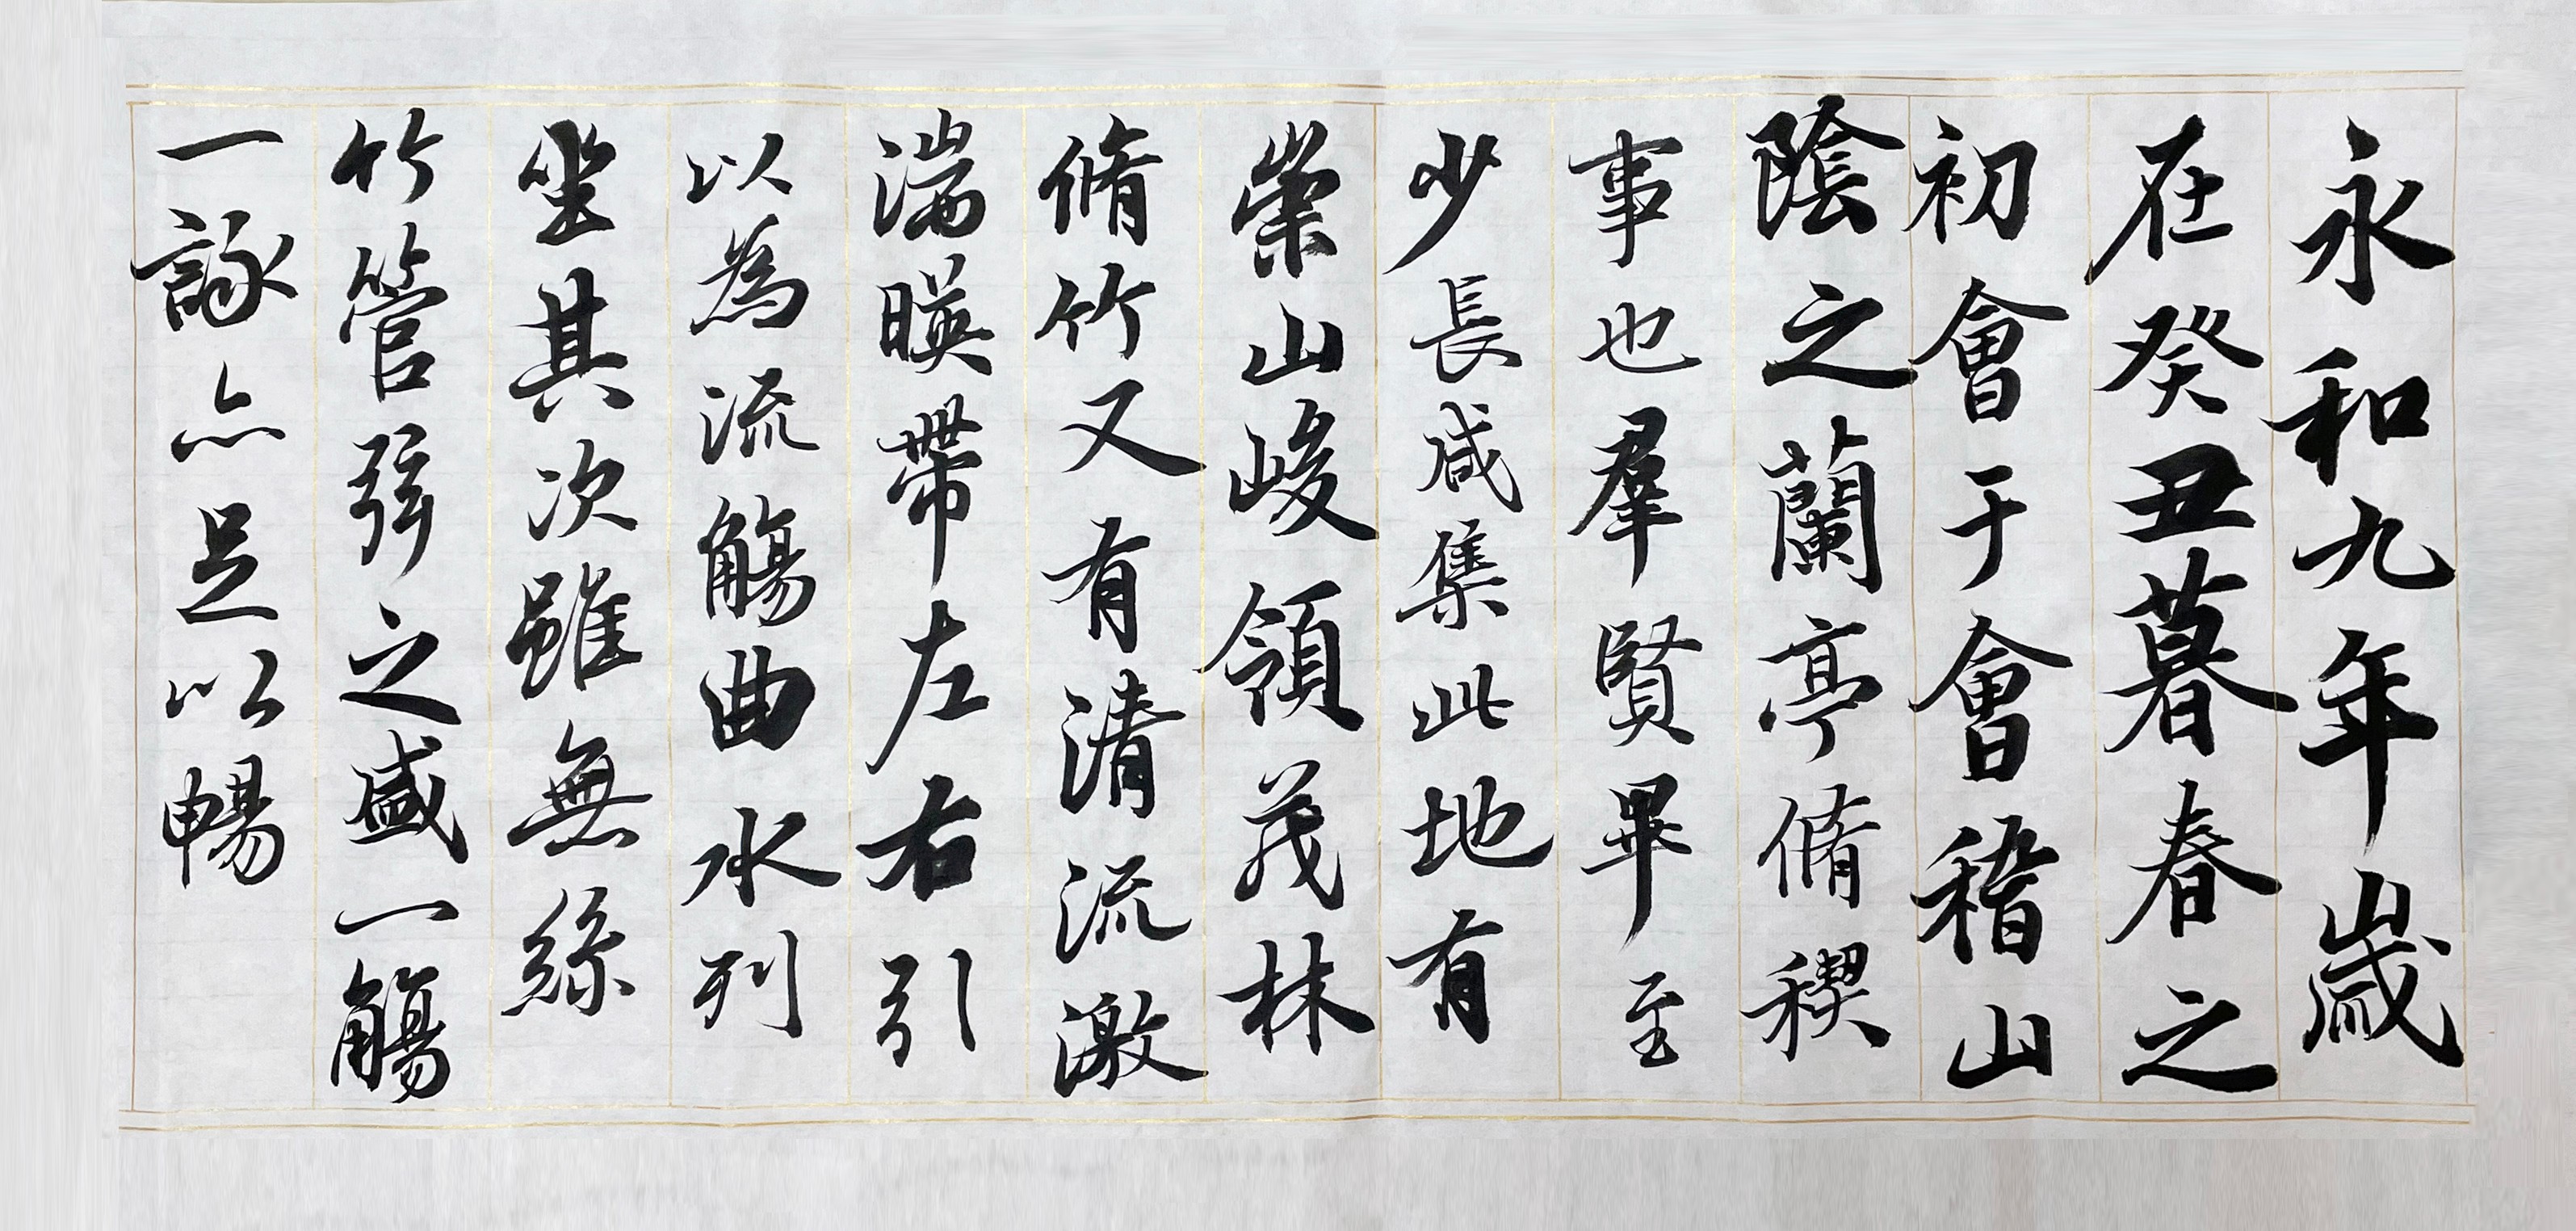 永和九年歲
在癸丑暮春之
初會于會稽山
陰之蘭亭脩稧
事也羣賢畢至
少長咸集此地有
崇山峻領茂林
脩竹又有清流激
湍暎帶左右引
以為流觴曲水列
坐其次雖無絲
竹管弦之盛一觴
一詠亦足以暢